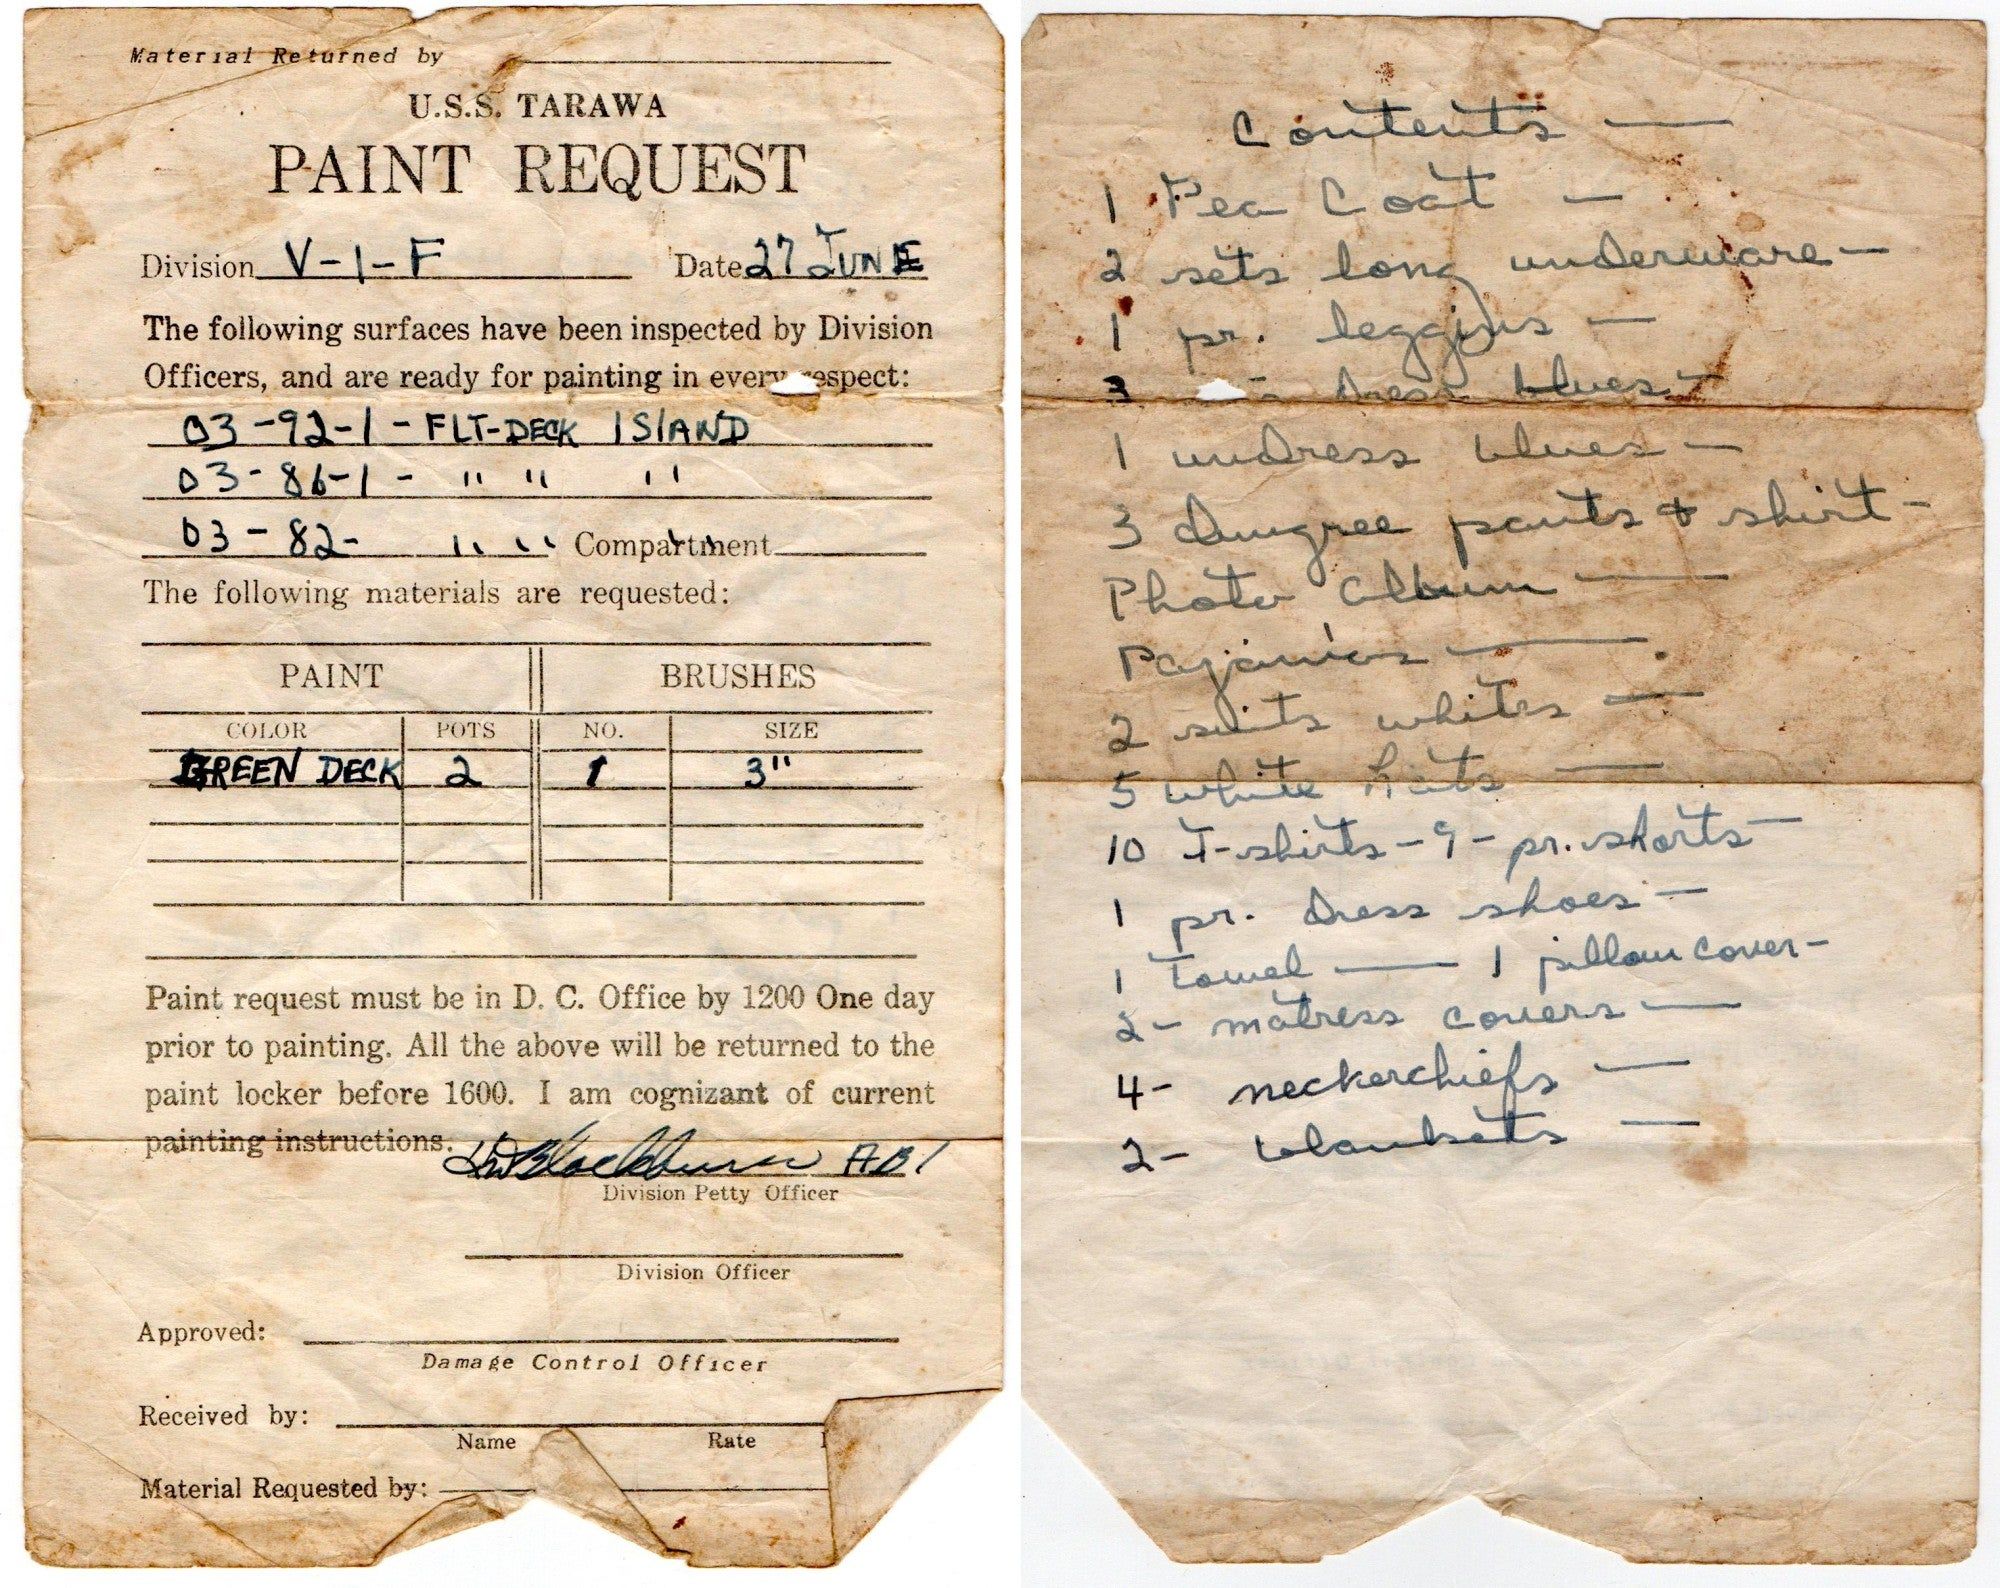 Material Returned by
U.S.S. TARAWA
PAINT REQUEST
Division V-1-F Date 27 JUNE
The following surfaces have been inspected by Division
Officers, and are ready for painting in every respect:
03-92-1 - FLT-DECK ISLAND
03-86-1 - " " "
03-82- " " Compartment "
The following materials are requested:
PAINT BRUSHES
COLOR POTS NO. SIZE
GREEN DECK 2 1 3"
Paint request must be in D. C. Office by 1200 One day
prior to painting. All the above will be returned to the
paint locker before 1600. I am cognizant of current
painting instructions.
Blackburn AB1
Division Petty Officer
Division Officer
Approved:
Damage Control Officer
Received by:
Name Rate
Material Requested by:
Contents —
1 Pea Coat —
2 sets long underware —
1 pr. leggins —
3 - dress blues -
1 undress blues —
3 dungree pants & shirt -
Photo Album —
Pajamas —
2 suits whites —
5 white hats —
10 T-shirts - 9 - pr. shorts -
1 pr. dress shoes —
1 Towel — 1 pillow cover -
2 - matress covers —
4 - neckerchiefs —
2 - blankets —